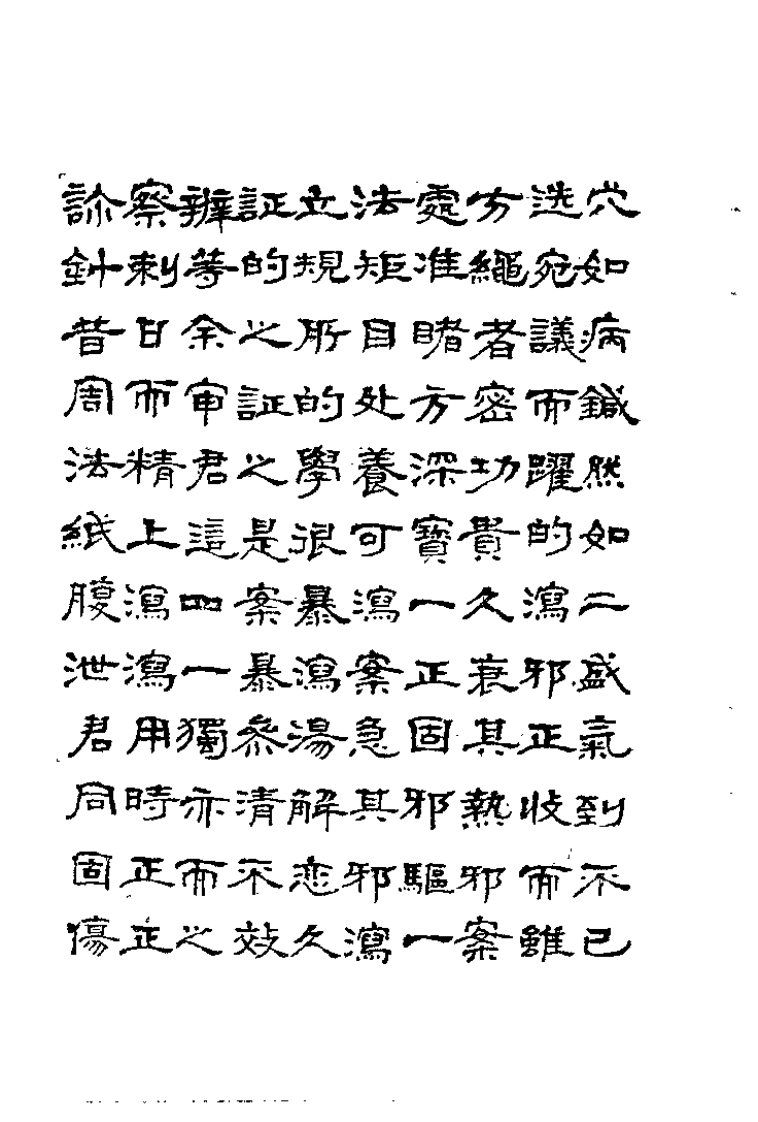 診察辨証立法處方选穴
針刺等的規矩准繩宛如
昔日余之所目睹者議病
周而审証的处方密而鍼
法精君之學養深功躍然
紙上這是很可寶貴的如
腹瀉四案暴瀉一久瀉二
泄瀉一暴瀉案正衰邪盛
君用獨參湯急固其正氣
同時亦清解其邪熱收到
固正而不恋邪驅邪而不
傷正之效久瀉一案雖已